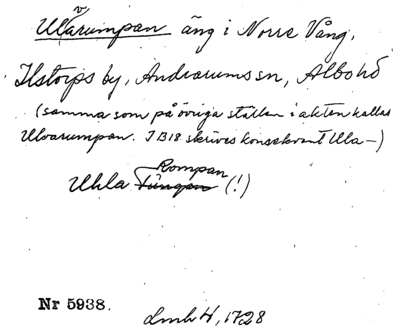 Ulvarumpan äng i Norre Vång,
Ilstorps by, Andrarums sn, Albo hd
(samma som på övriga ställen i akten kallas
Ulvarumpan. I B18 skrives konsekvent Ula-)
Rompan
Uhla Tüngan (!)
Nr 5938.
Lmh 4, 1728